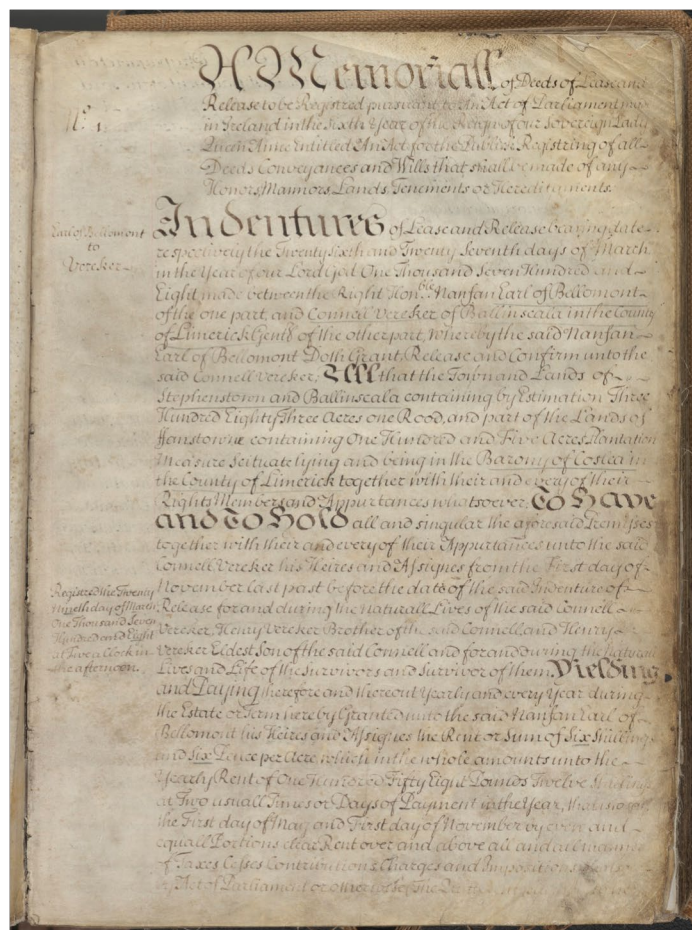 A Memoriall of Deeds of Lease and
Release to be Registred pursuant to An Act of Parliament
No. 1
in Ireland in the Sixth Year of the Reign of our Sovereign Lady
Queen Anne Entitled An Act for the Publick Registring of all
Deeds Conveyances and Wills that shall be made of any
Honors Mannors Lands Tenements or Hereditaments.
Earl of Bellomont
to
Vereker
Indentures of Lease and Release bearing date
respectively the Twenty sixth and Twenty Seventh days of March
in the Year of our Lord God One Thousand Seven Hundred and
Eight made between the Right Hon.ble Nanfan Earl of Bellomont
of the one part, and Connell Vereker of Ballinscala in the County
of Limerick Gent of the other part, Whereby the said Nanfan
Earl of Bellomont Doth Grant Release and Confirm unto the
said Connell Vereker, All that the Town and Lands of
Stephenstown and Ballinscala containing by Estimation Three
Hundred Eighty Three Acres one Rood, and part of the Lands of
containing One Hundred and Five Acres Plantation
Measure Scituate lying and being in the Barony of Coslea in
the County of Limerick together with their and every of their
Rights Members and Appurtances whatsoever, To Have
and To Hold all and singular the aforesaid Premisses
together with their and every of their Appurtances unto the said
Connell Vereker his Heires and Assignes from the First day of
November last past before the date of the said Indenture of
Release for and during the Naturall Lives of the said Connell
Vereker, Henry Vereker Brother of the said Connell and Henry
Vereker Eldest Son of the said Connell and for and during the Naturall
Lives and Life of the Survivors and Survivor of them, Yielding
and Paying therefore and thereout Yearly and every Year during
the Estate or Term hereby Granted unto the said Nanfan Earl of
Bellomont his Heires and Assignes the Rent or Sum of Six Shillings
and Six Pence per Acre which in the whole amounts unto the
Yearly Rent of One Hundred Fifty Eight Pounds Twelve
at Two usuall Times or Days of Payment in the Year, that is to say
the First day of May and First day of November by even and
equall Portions clear Rent over and above all and all manner
of Taxes Cesses Contributions Charges and Impositions
by Act of Parliament or otherwise,
Registred the Twenty
Nineth day of March
One Thousand Seven
Hundred and Eight
at Five a Clock in
the afternoon.